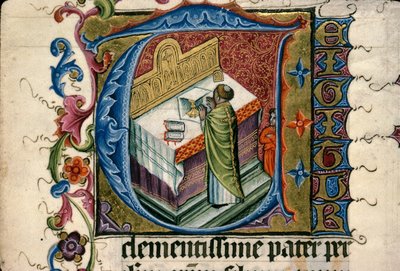 TEIGITUR
clementissime pater per